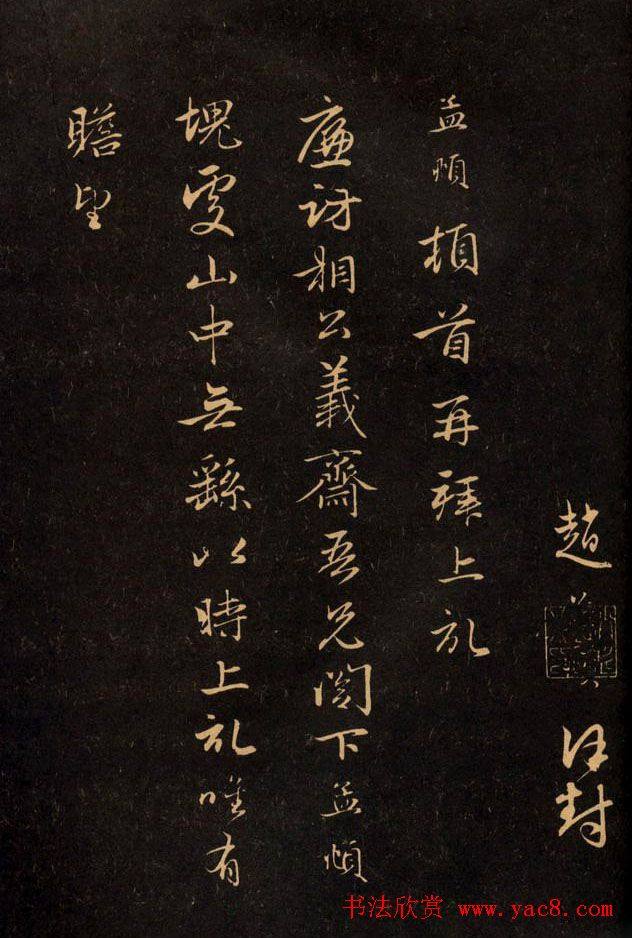 趙
謹封
孟頫頓首再拜上記
廉訪相公義齋吾兄閣下孟頫
塊處山中無繇以時上記唯有
瞻望
书法欣赏 www.yac8.com